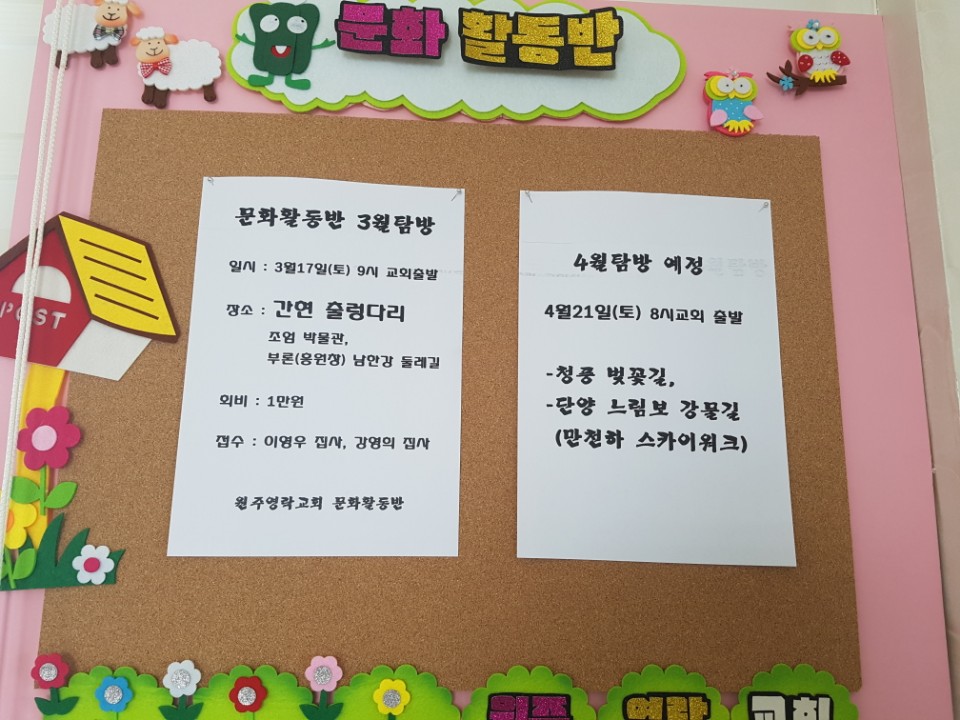 문화 활동반
POST
문화활동반 3월탐방
일시 : 3월17일(토) 9시 교회출발
장소 : 간현 출렁다리
조엄 박물관,
부론(흥원창) 남한강 둘레길
회비 : 1만원
접수 : 이영우 집사, 강영의 집사
원주영락교회 문화활동반
4월탐방 예정
4월21일(토) 8시교회 출발
-청풍 벚꽃길,
-단양 느림보 강물길
(만천하 스카이워크)
원주 영락 교회